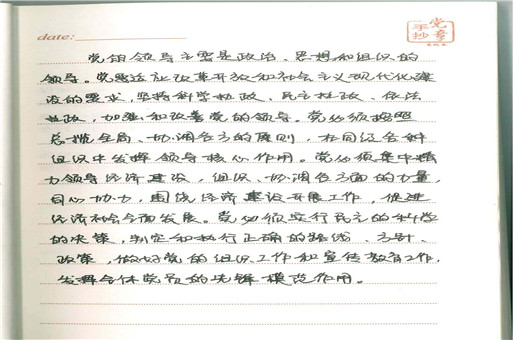 date:
党章
手抄
党的领导主要是政治、思想和组织的
领导。党要适应改革开放和社会主义现代化建
设的要求，坚持科学执政、民主执政、依法
执政，加强和改善党的领导。党必须按照
总揽全局、协调各方的原则，在同级各种
组织中发挥领导核心作用。党必须集中精
力领导经济建设，组织、协调各方面的力量，
同心协力，围绕经济建设开展工作，促进
经济社会全面发展。党必须实行民主的科学
的决策，制定和执行正确的路线、方针、
政策，做好党的组织工作和宣传教育工作，
发挥全体党员的先锋模范作用。